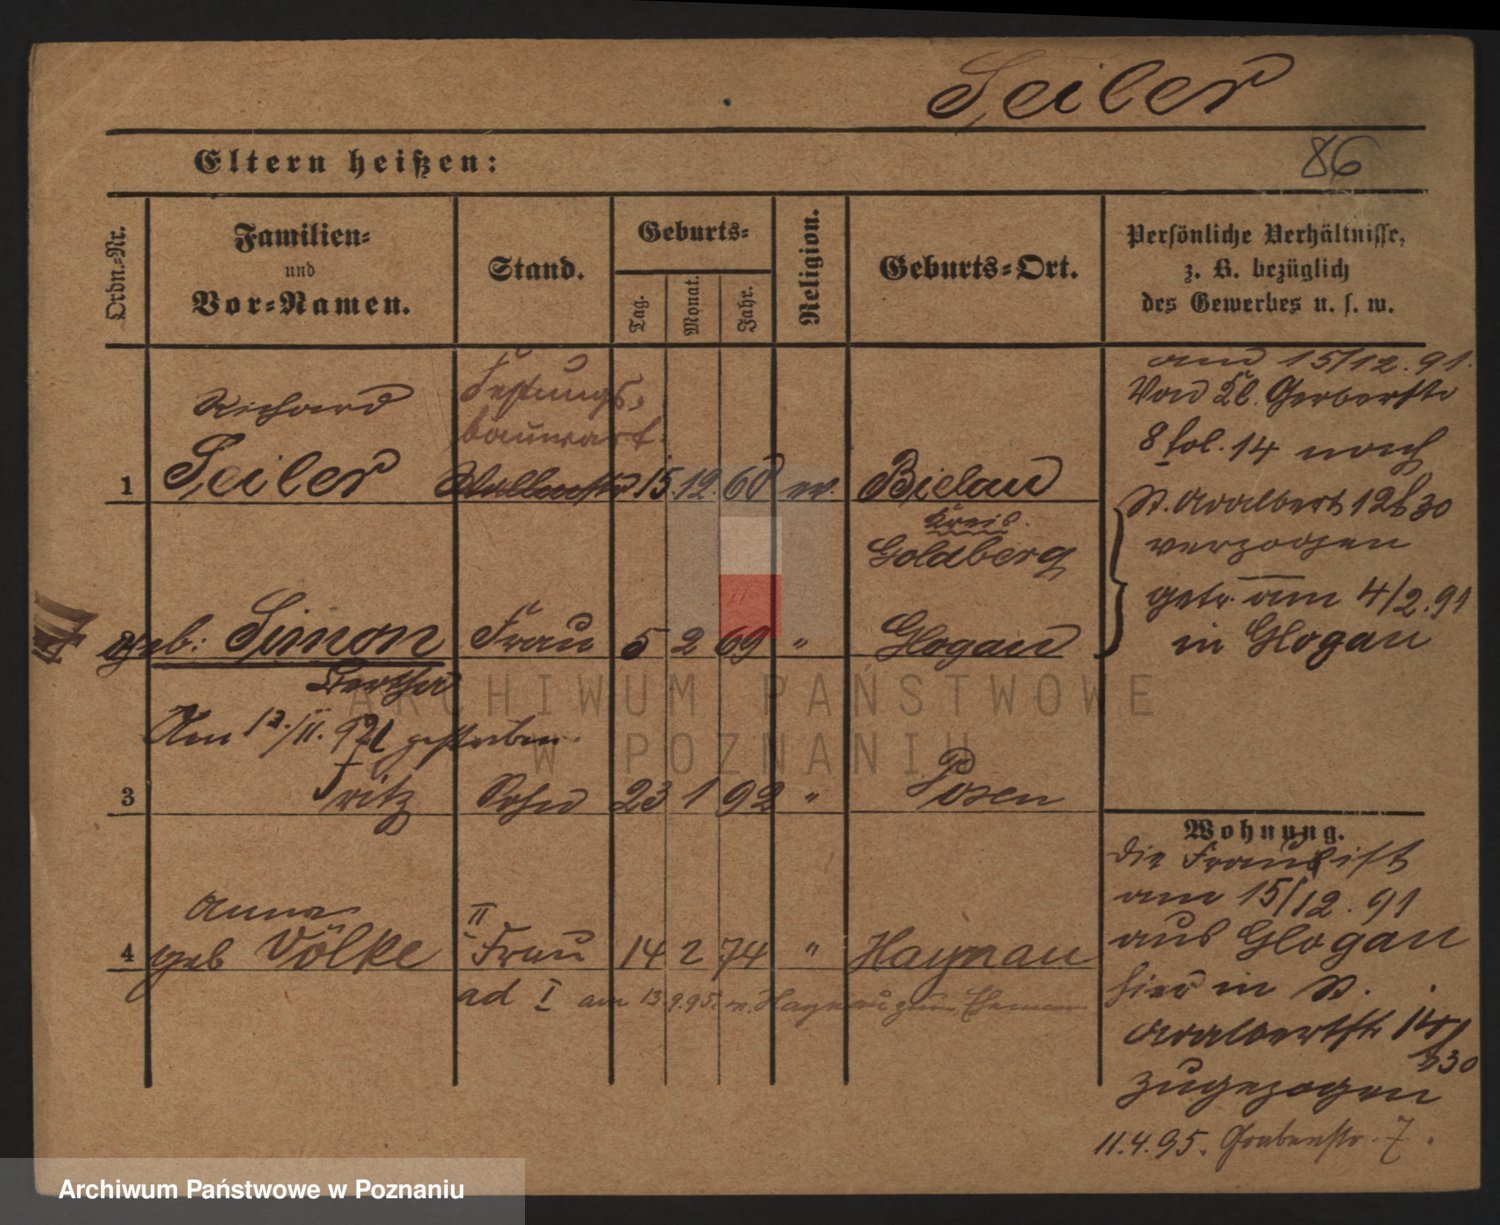 Seiler
Eltern heißen:
86
Ordn.-Nr.
Familien-
und
Vor-Namen.
Stand.
Geburts-
Tag.
Monat.
Jahr.
Religion.
Geburts-Ort.
Persönliche Verhältnisse,
z. B. bezüglich
des Gewerbes u. s. w.
Richard
Festungs-
bauwart.
1 Seiler 15. 12. 60 ev. Bielau
Kreis
Goldberg
am 15/12. 91.
Von Kl. Gerberstr
8 fol. 14 nach
St. Adalbert 12 b 30
verzogen
getr. am 4/2. 91
in Glogau
geb: Simon Frau 5 2 69 " Glogau
Bertha
Am 12./11. 92 gestorben
3 Fritz Sohn 23 1 92 " Posen
Wohnung.
Die Frau ist
am 15/12. 91
aus Glogau
hier in St.
Adalbertstr
zugezogen
11.4.95. Grabenstr. 7.
Anna
4 geb Völke II Frau 14 2 74 " Haynau
ad I am 13.9.95. v. Haynau zum Ehemann
ARCHIWUM PAŃSTWOWE
W POZNANIU
Archiwum Państwowe w Poznaniu